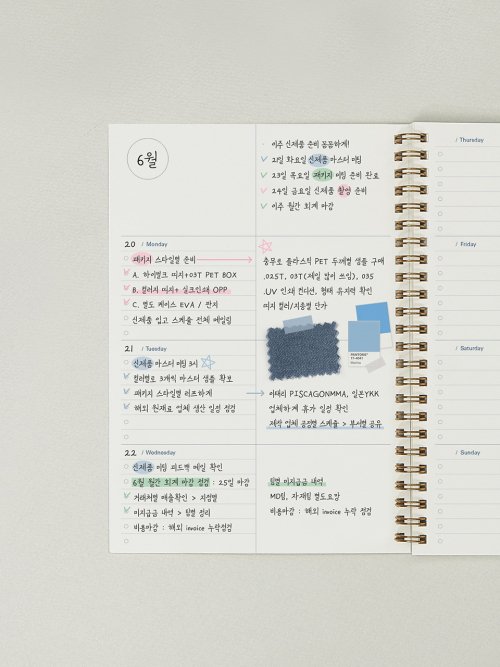 6월
· 이주 신제품 준비 꼼꼼하게!
21일 화요일 신제품 마스터 미팅
23일 목요일 패키지 미팅 준비 완료
24일 금요일 신제품 촬영 준비
이주 월간 회계 마감
20 / Monday
패키지 스타일별 준비
A. 하이벌크 띠지+03T PET BOX
B. 컬러지 띠지+ 실크인쇄 OPP
C. 별도 케이스 EVA / 판지
신제품 입고 스케줄 전체 메일링
충무로 플라스틱 PET 두께별 샘플 구매
.025T, 03T(제일 많이 쓰임), 035
.UV 인쇄 컨디션, 형태 유지력 확인
띠지 컬러/지종별 단가
21 / Tuesday
신제품 마스터 미팅 3시
컬러별로 3개씩 마스터 샘플 확보
패키지 스타일별 러프하게
해외 원재료 업체 생산 일정 점검
PANTONE
이태리 PISCAGONMMA, 일본YKK
업체하계 휴가 일정 확인
제작 업체 공정별 스케줄 > 부서별 공유
22 / Wednesday
신제품 미팅 피드백 메일 확인
6월 월간 회계 마감 점검 : 25일 마감
거래처별 매출확인 > 지점별
미지급금 내역 > 팀별 정리
비용마감 : 해외 invoice 누락점검
팀별 미지급금 내역
MD팀, 자재팀 별도요망
비용마감 : 해외 invoice 누락 점검
/ Thursday
/ Friday
/ Saturday
/ Sunday